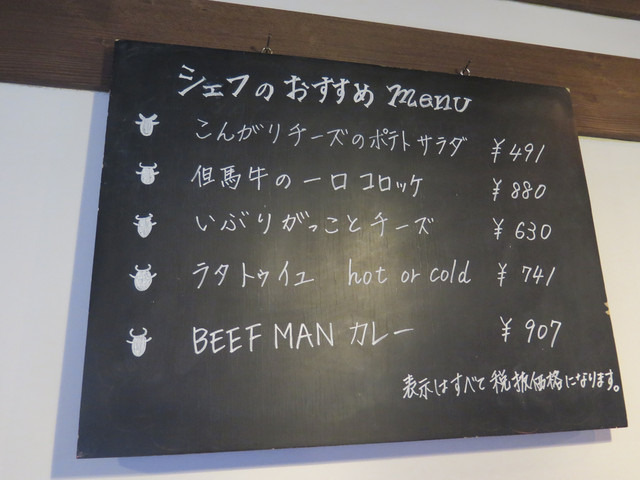 シェフのおすすめ menu
こんがりチーズのポテトサラダ ¥491
但馬牛の一口コロッケ ¥880
いぶりがっことチーズ ¥630
ラタトゥイユ hot or cold ¥741
BEEF MAN カレー ¥907
表示はすべて税抜価格になります。